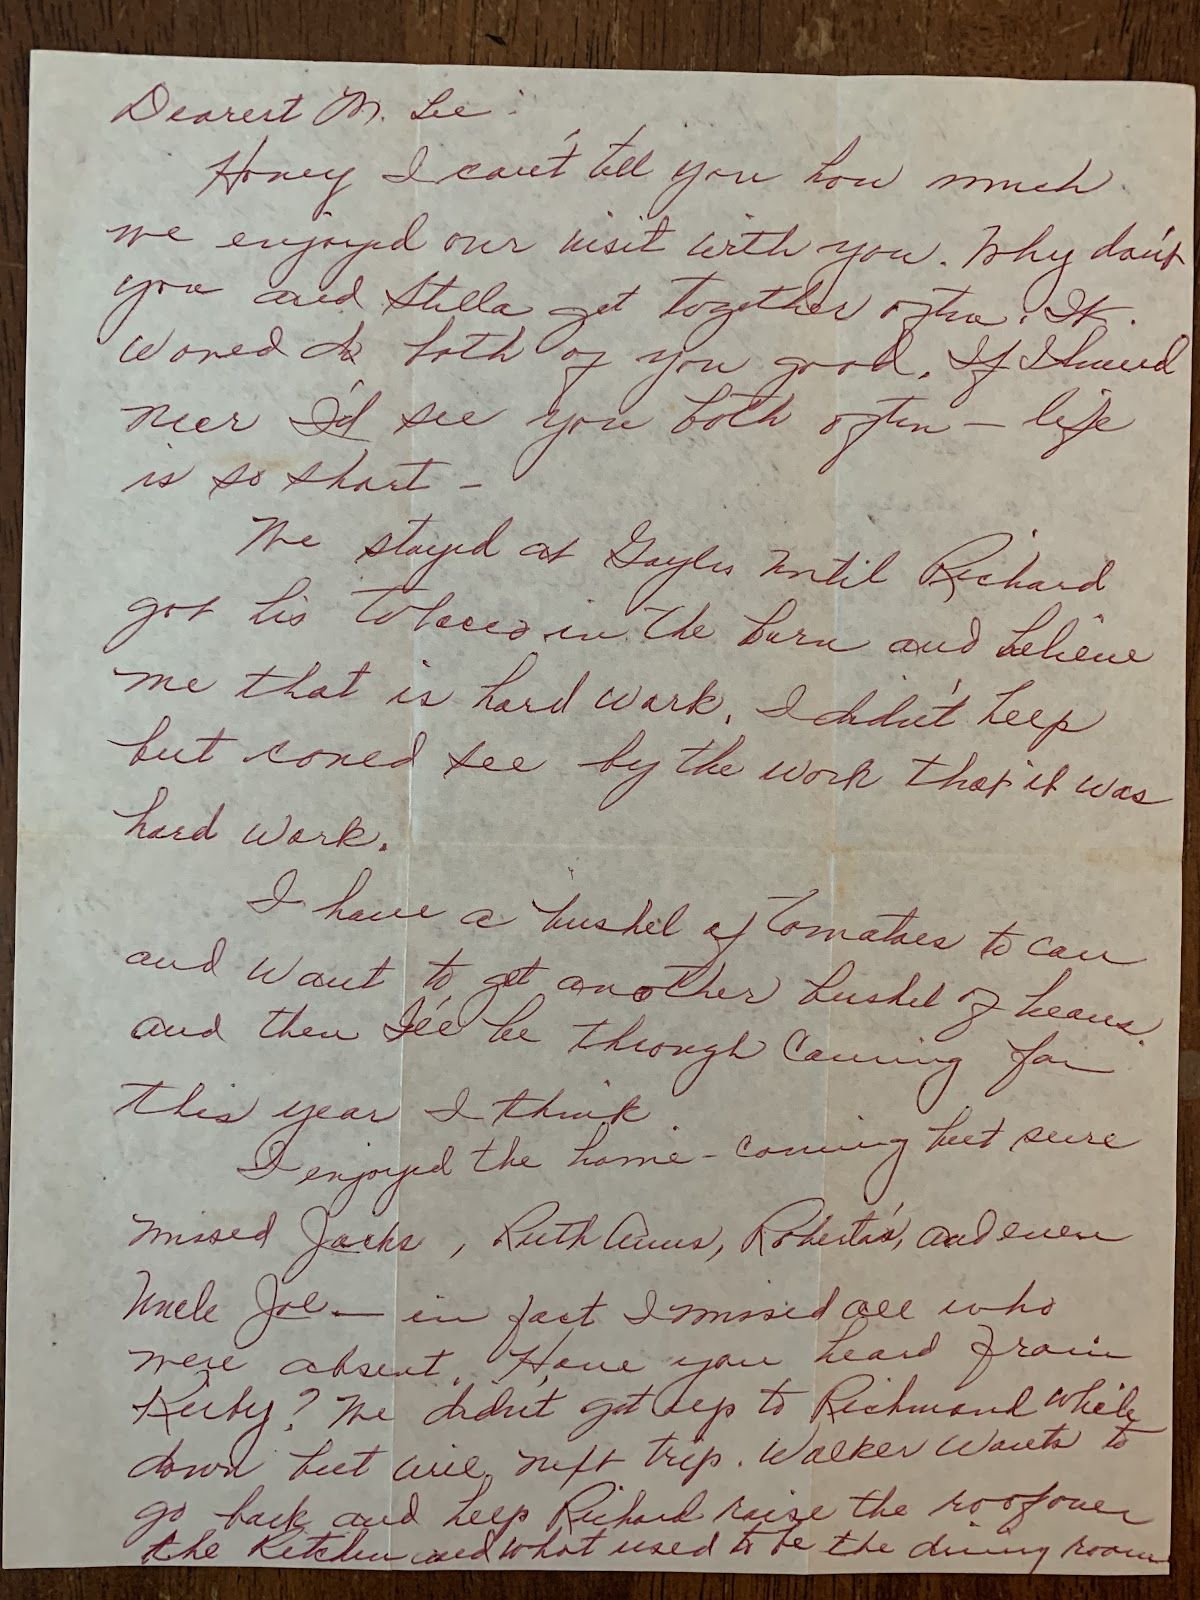 Dearest M. Lee:
Honey I can't tell you how much
we enjoyed our visit with you. Why don't
you and Stella get together often. It
would do both of you good. If I lived
near I'd see you both often — life
is so short —
We stayed at Gayles until Richard
got his tobacco in the barn and believe
me that is hard work. I didn't help
but could see by the work that it was
hard work.
I have a bushel of tomatoes to can
and want to get another bushel of beans
and then I'll be through canning for
this year I think
I enjoyed the home-coming but sure
missed Jacks, Ruth Anns, Roberta's, and even
Uncle Joe — in fact I missed all who
were absent. Have you heard from
Kirby? We didn't get up to Richmond while
down but will next trip. Walker wants to
go back and help Richard raise the roof over
the kitchen and what used to be the dining room